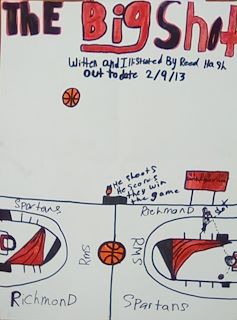 THE Big Shot
Written and Illistrated By Reed Hash
out to date 2/9/13
He shoots
He scores
they win
the game
Spartans
Richmond
RMS
RMS
Richmond
Spartans